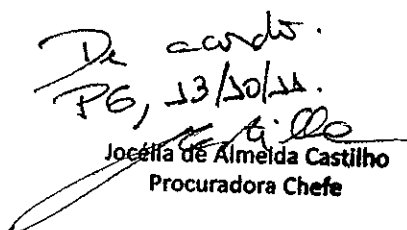 De acordo.
PG, 13/10/11.
Jocélia de Almeida Castilho
Procuradora Chefe